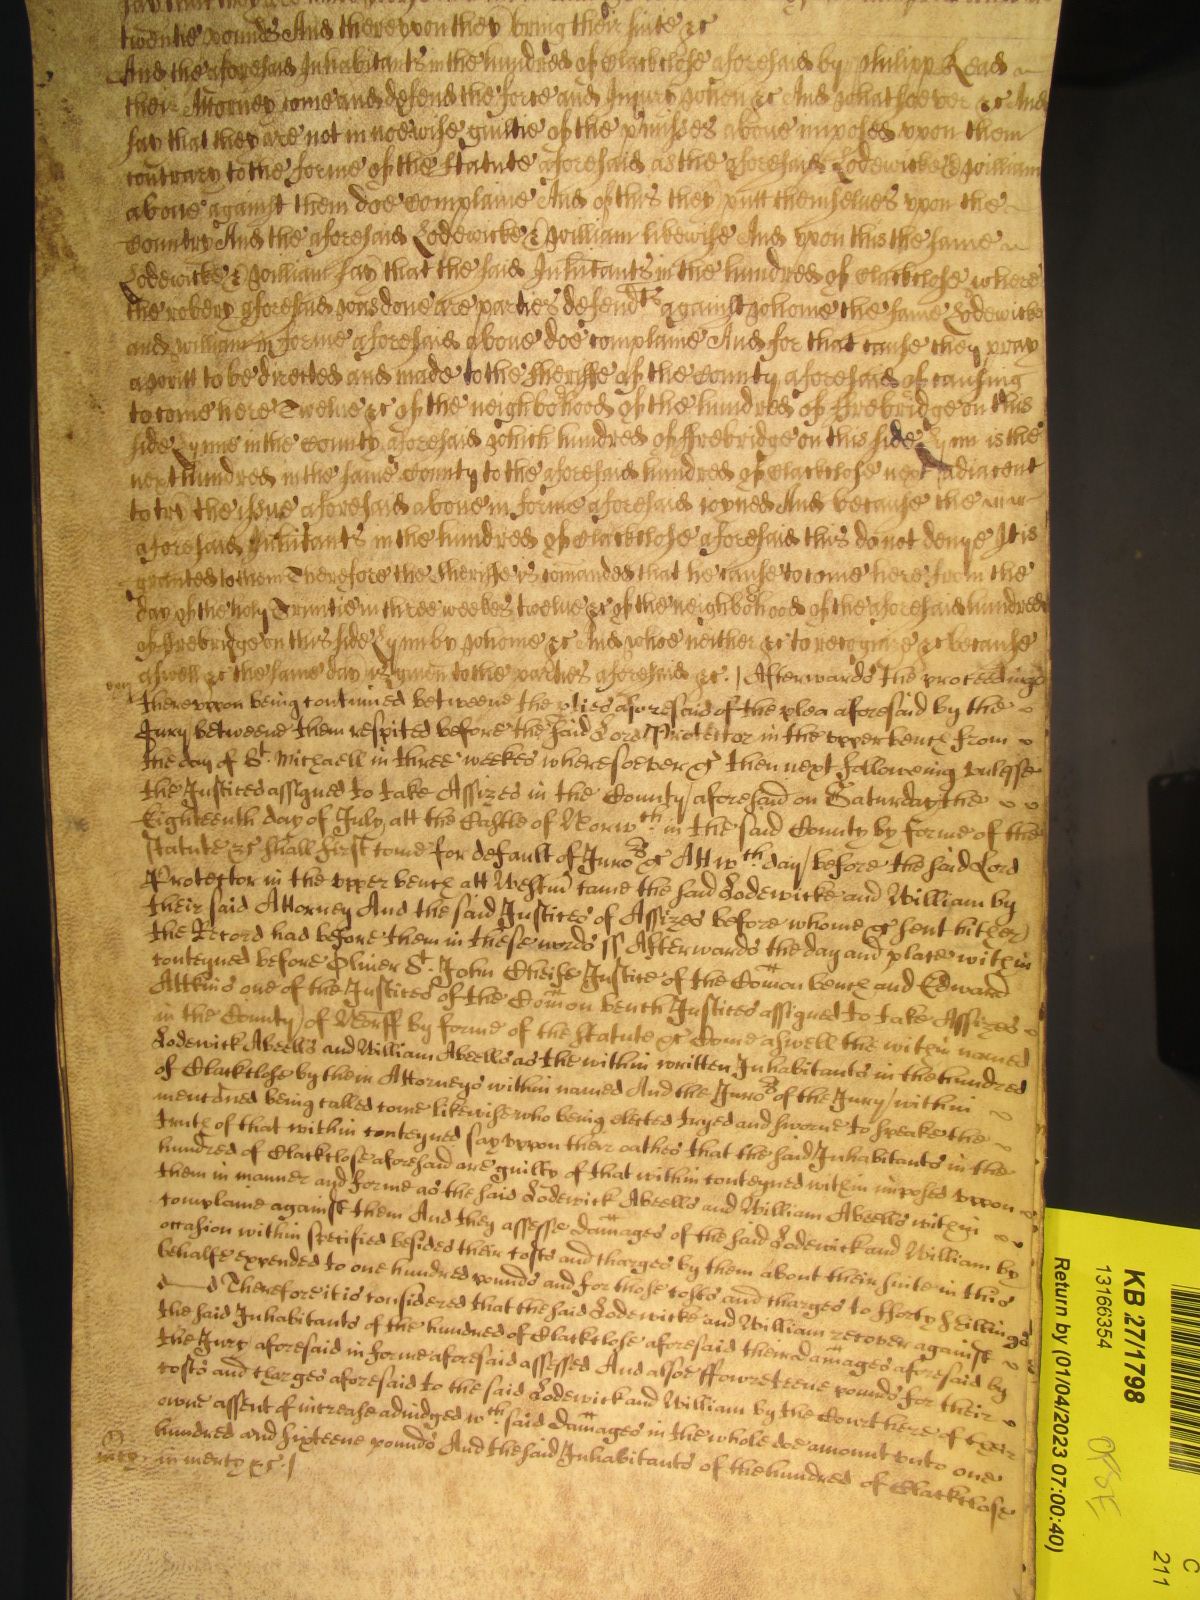 twentie pounds And thereupon they bring their suite &c
And the aforesaid Inhabitants in the hundred of Clackclose aforesaid by Philipp Read
their Attorney come and defend the force and Injury when &c And whatsoever &c And
say that they are not in noewise guiltie of the p'misses above imposed vpon them
contrary to the forme of the Statute aforesaid as the aforesaid Lodewicke & William
aboue against them doe complaine And of this they putt themselues vpon the
Country And the aforesaid Lodewicke & William likewise And vpon this the same
Lodewicke & William say that the said Inhitants in the hundred of Clackclose where
the robery aforesaid was done are parties defendts against whome the same Lodewicke
and William in forme aforesaid aboue doe complaine And for that cause they pray
a writt to be directed and made to the Sheriffe of the County aforesaid of causing
to come here Twelue &c of the neighbohood of the hundred of ffrebridge on this
side Lynne in the County aforesaid which hundred of ffrebridge on this side Lynn is the
next hundred in the same County to the aforesaid hundred of Clackclose next adiacent
to try the issue aforesaid aboue in forme aforesaid ioyned And because the
aforesaid Inhitants in the hundred of Clackclose aforesaid this do not denye It is
granted to them Therefore the Sheriffe is comanded that he cause to come here from the
day of the holy Trinitie in three weekes twelue &c of the neighbohood of the aforesaid hundred
of ffrebridge on this side Lynn by whome &c And whoe neither &c to recognize &c because
aswell &c the same day is giuen to the parties aforesaid &c. Afterwards the proceedings
therevpon being continued betweene the pties aforesaid of the plea aforesaid by the
Jury betweene them respited before the said Lord Protector in the vpper bench from
the day of St. Michaell in three weekes wheresoever &c then next following vnlesse
the Justices assigned to take Assizes in the County aforesaid on Saturday the
Eighteenth day of July att the Castle of Norwch in the said County by forme of the
Statute &c shall first come for default of Juro's &c Att wch day before the said Lord
Protector in the vpper bench att Westm' came the said Lodewicke and William by
their said Attorney And the said Justices of Assizes before whome &c sent hither
the Record had before them in these words ss Afterwards the day and place within
conteyned before Oliver St. John Cheife Justice of the Comon bench and Edward
Attkins one of the Justices of the Comon bench Justices assigned to take Assizes
in the County of Norff by forme of the Statute &c Come aswell the within named
Lodewick Abeells and William Abeells as the within written Inhabitants in the hundred
of Clackclose by their Attorneys within named And the Juro's of the Jury within
mencioned being called come likewise who being elected tryed and sworne to speake the
truth of that within conteyned say vppon their oathes that the said Inhabitants in the
hundred of Clackclose aforesaid are guilty of that within conteyned within imposed vppon
them in manner and forme as the said Lodewick Abeells and William Abeells within
complaine against them And they assesse damages of the said Lodewick and William by
occasion within specified besides their costs and charges by them about their suite in this
behalfe expended to one hundred pounds and for those costs and charges to fforty shillings
Therefore it is considered that the said Lodewicke and William recover against
the said Inhabitants of the hundred of Clackclose aforesaid their damages aforesaid by
the Jury aforesaid in forme aforesaid assessed And alsoe ffowreteene pounds for their
costs and charges aforesaid to the said Lodewick and William by the Court here of their
owne assent of increase adiudged wch said damages in the whole doe amount vnto one
hundred and sixteene pounds And the said Inhabitants of the hundred of Clackclose
in mercy &c.
KB 27/1798
13166354
Return by (01/04/2023 07:00:40)
C
211